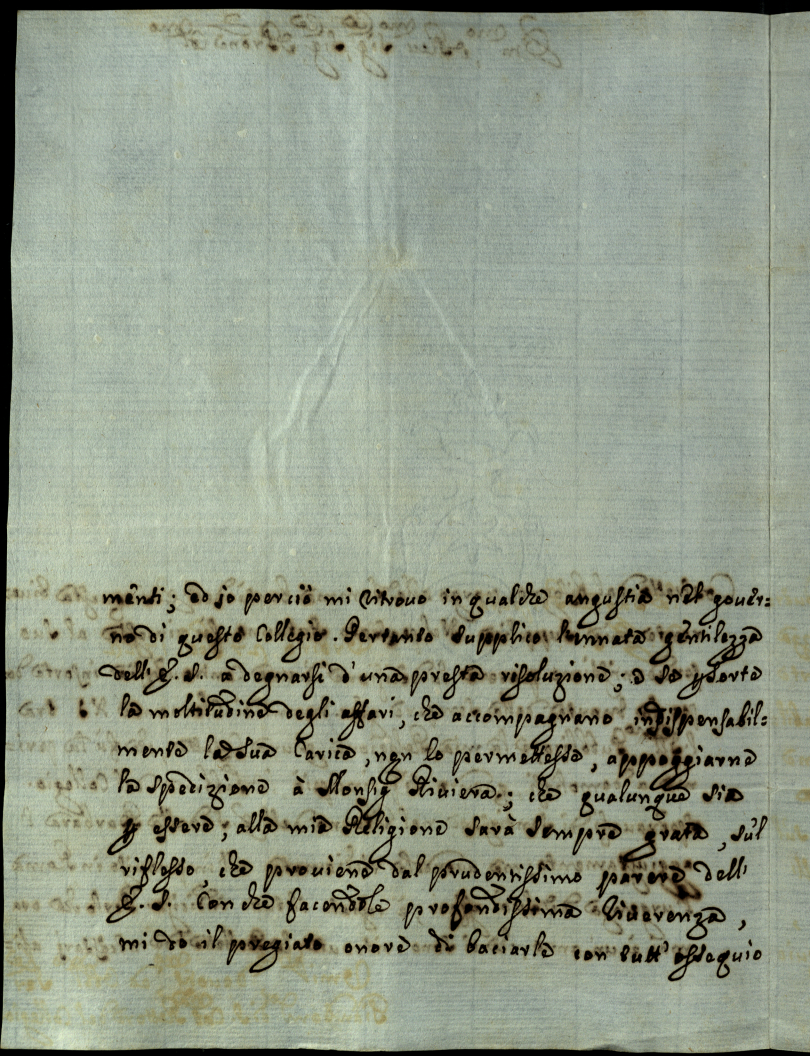 menti; ed io perciò mi ritrovo in qualche angustia nel gover=
no di questo Collegio. Pertanto supplico l'innata gentilezza
dell'E. S. a degnarsi d'una presta risoluzione; e se p sorte
la moltitudine degli affari, che accompagnano indispensabil=
mente la Sua Carica, non lo permettesse, appoggiarne
la spedizione à Monsig. Riviera; che qualunque sia
p essere, alla mia Religione sarà sempre grata, sul
riflesso, che proviene dal prudentissimo parere dell'
E. S. Con che facendole profondissima riverenza,
mi do il pregiato onore di baciarle con tutt' ossequio